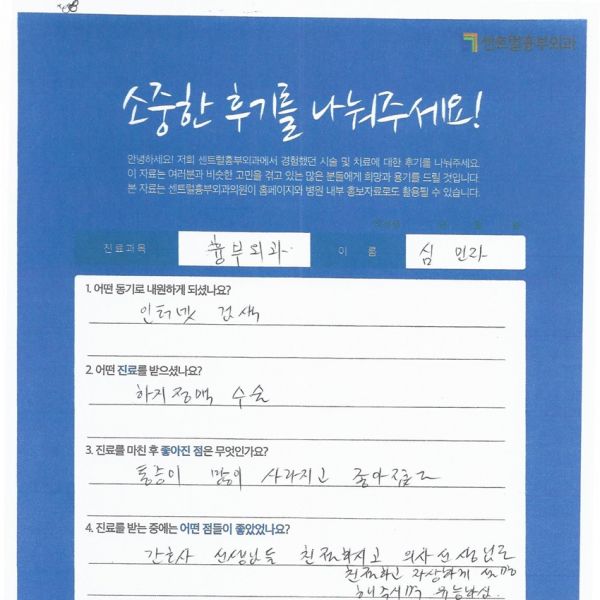 센트럴흉부외과
소중한 후기를 나눠주세요!
안녕하세요! 저희 센트럴흉부외과에서 경험했던 시술 및 치료에 대한 후기를 나눠주세요.
이 자료는 여러분과 비슷한 고민을 겪고 있는 많은 분들에게 희망과 용기를 드릴 것입니다
본 자료는 센트럴흉부외과의원이 홈페이지와 병원 내부 홍보자료로도 활용될 수 있습니다.
진료과목 흉부외과 이 름 심 민라
1. 어떤 동기로 내원하게 되셨나요?
인터넷 검색
2. 어떤 진료를 받으셨나요?
하지정맥 수술
3. 진료를 마친 후 좋아진 점은 무엇인가요?
통증이 많이 사라지고 좋아졌고
4. 진료를 받는 중에는 어떤 점들이 좋았었나요?
간호사 선생님들 친절하시고 의사선생님도
친절하고 자상하게 설명
해주시며